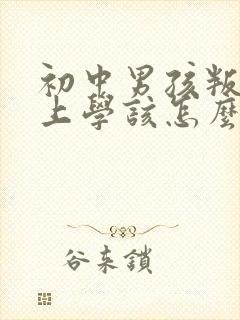 初中男孩叛
上學該怎麼
谷来鎖